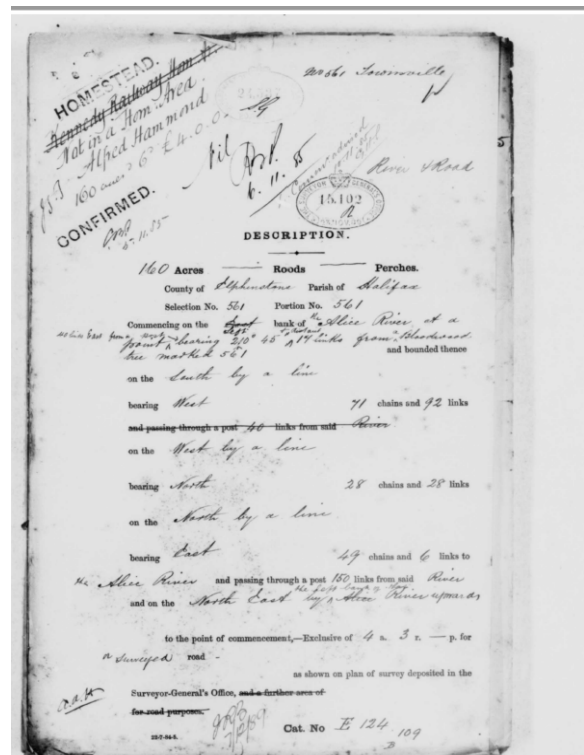 No 561 Townville
HOMESTEAD.
Kennedy Railway Hom
Not in a Hom Area.
Alfred Hammond
160 acres 6d £4.0.0.
CONFIRMED.
6.11.85
Nil
6.11.85
River & Road
15.102
DESCRIPTION.
160 Acres — Roods — Perches.
County of Elphinstone Parish of Halifax
Selection No. 561 Portion No. 561
Commencing on the left bank of the Alice River at a
point bearing 210° 45' 17 links from a Bloodwood
tree marked 561 and bounded thence
on the South by a line
bearing West 71 chains and 92 links
and passing through a post 40 links from said River
on the West by a line
bearing North 28 chains and 28 links
on the North by a line
bearing East 49 chains and 6 links to
the Alice River and passing through a post 150 links from said River
and on the North East by the left bank of the Alice River upwards
to the point of commencement,—Exclusive of 4 a. 3 r. — p. for
a surveyed road -
as shown on plan of survey deposited in the
Surveyor-General's Office, and a further area of
for road purposes.
Cat. No E 124
109
23-7-84-5.